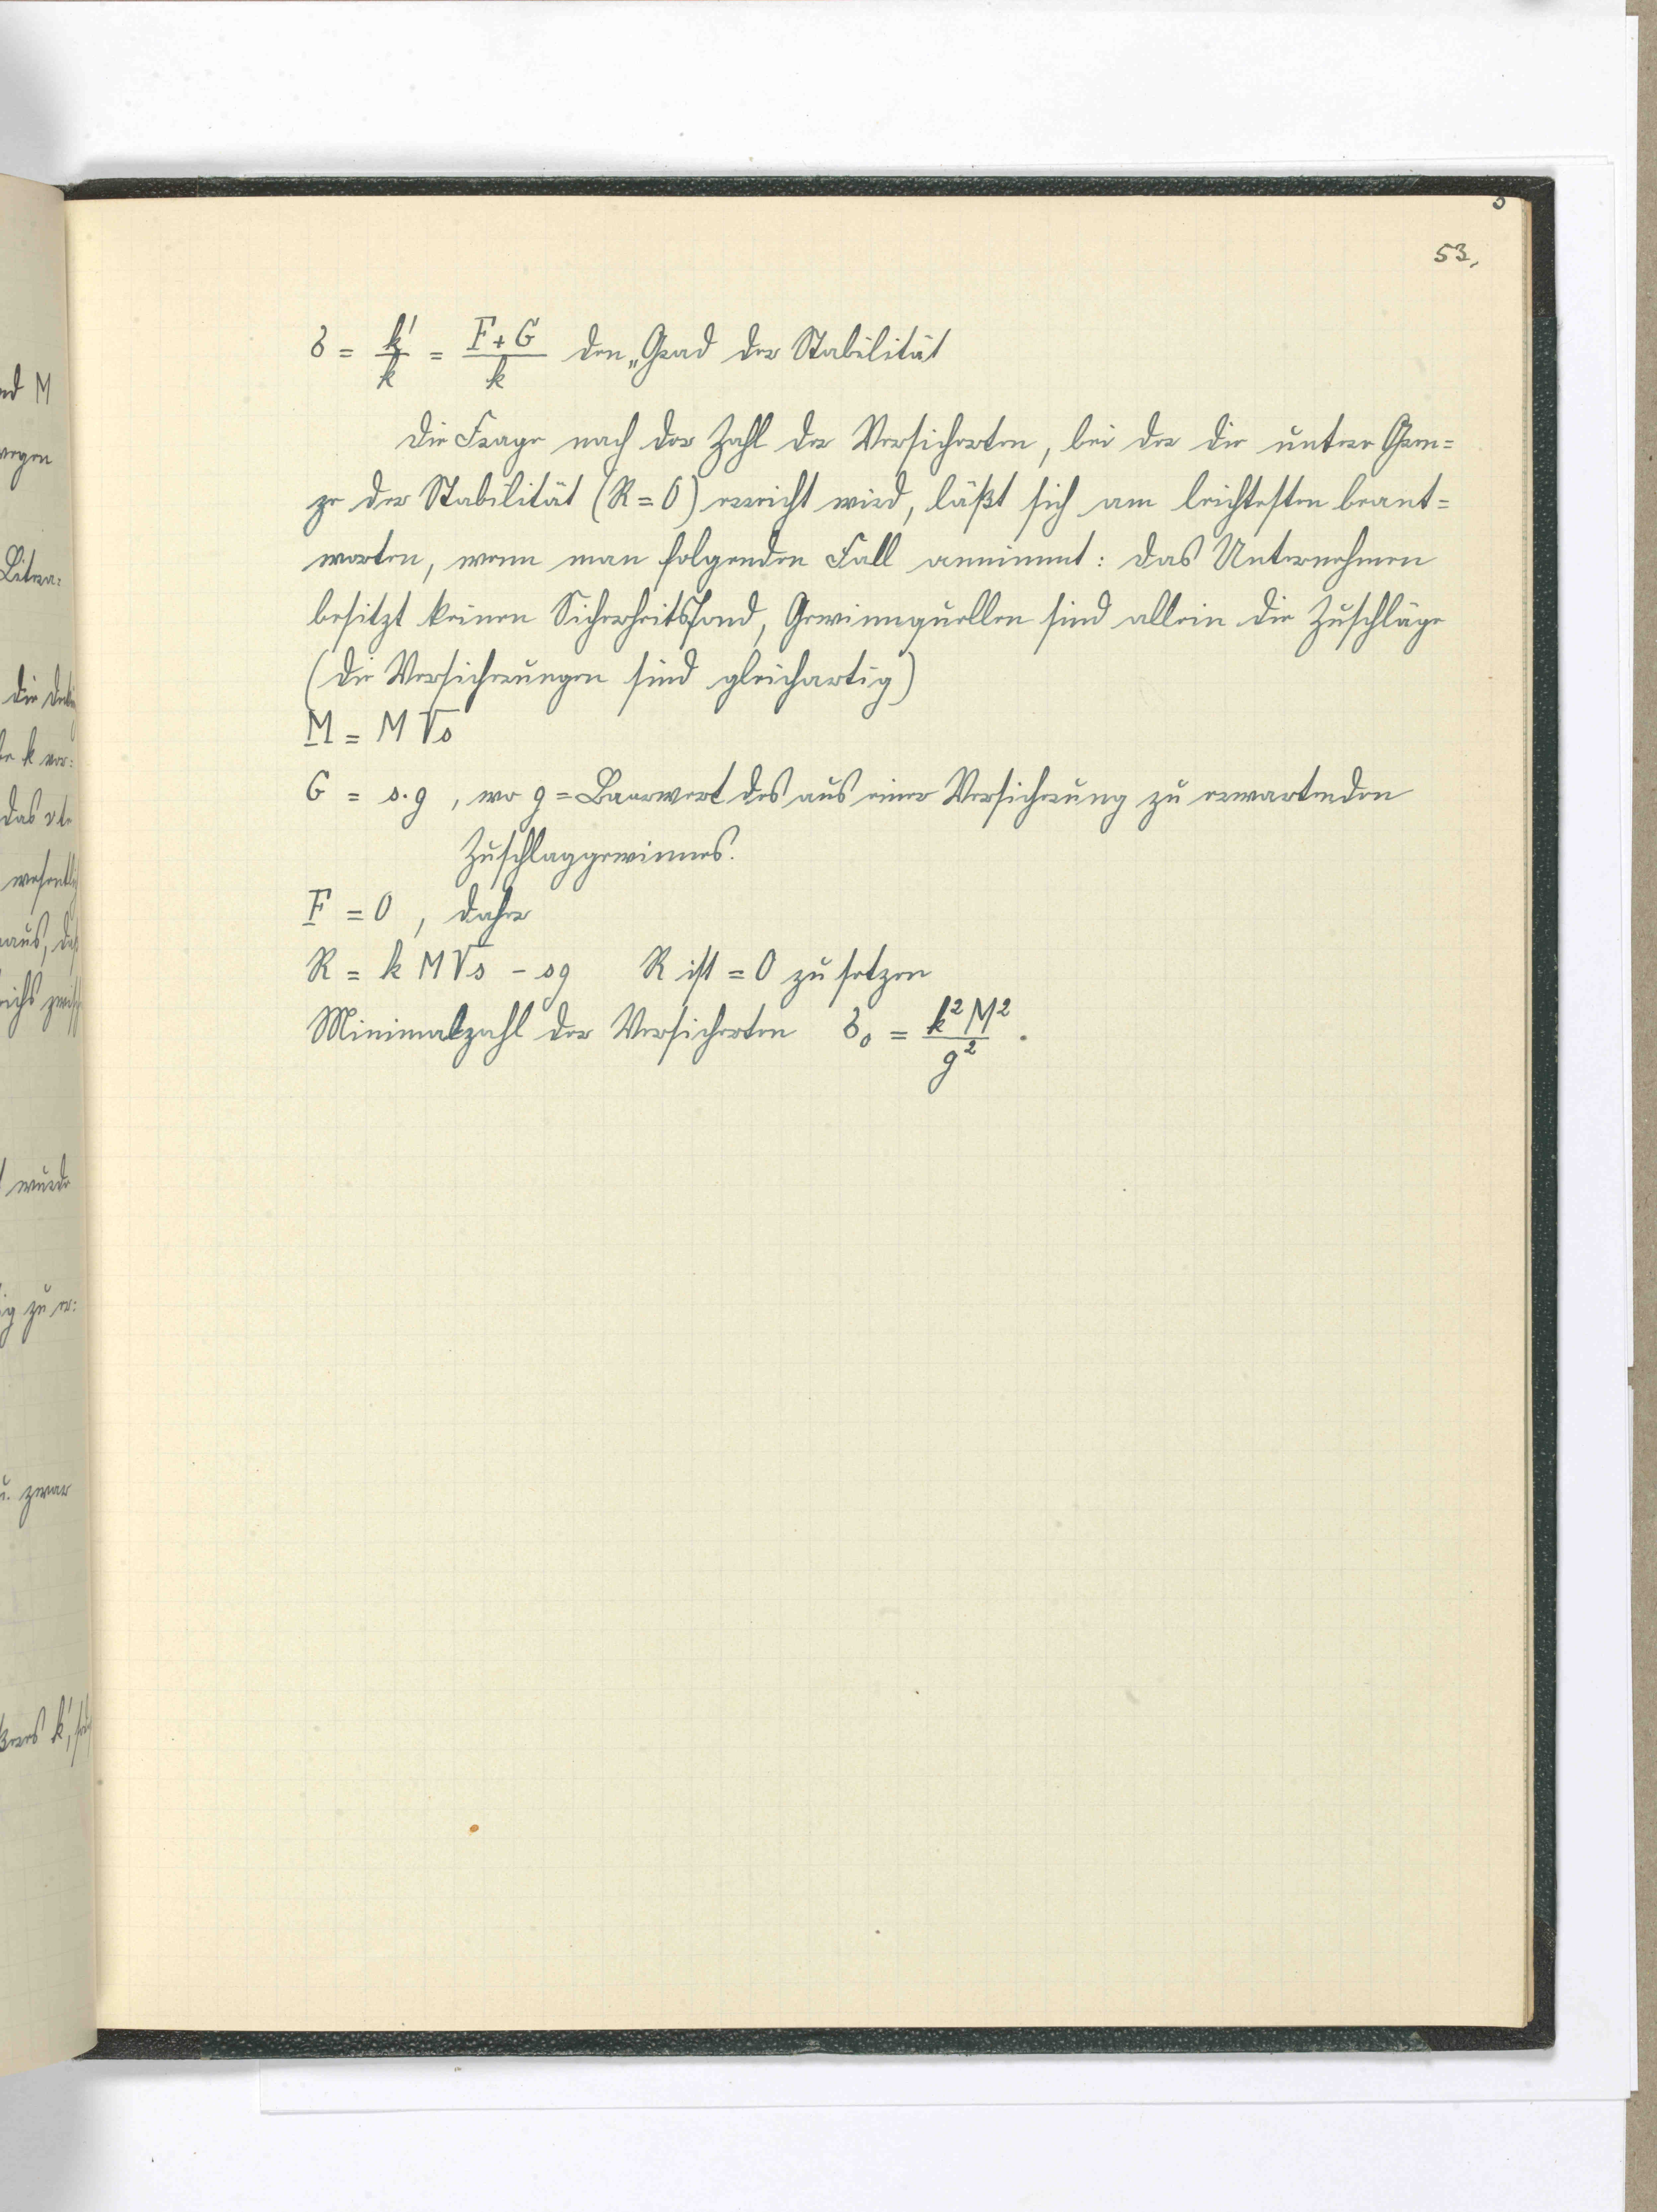 53.
δ = k'/k = F + G / k den „Grad der Stabilität
Die Frage nach der Zahl der Versicherten, bei der die untere Gren=
ze der Stabilität (R = 0) erreicht wird, läßt sich am leichtesten beant=
worten, wenn man folgenden Fall annimmt: das Unternehmen
besitzt keinen Sicherheitsfond, Gewinnquellen sind allein die Zuschläge
(die Versicherungen sind gleichartig)
M = M √s
G = s.g , wo g = Baarwert des aus einer Versicherung zu erwartenden
Zuschlaggewinnes.
F = 0 , daher
R = k M √s - sg R ist = 0 zu setzen
Minimalzahl der Versicherten s₀ = k² M² / g² .
nd M
wegen
Litera:
die
k vor:
das
wurde
ig zu er:
u. zwar
k',